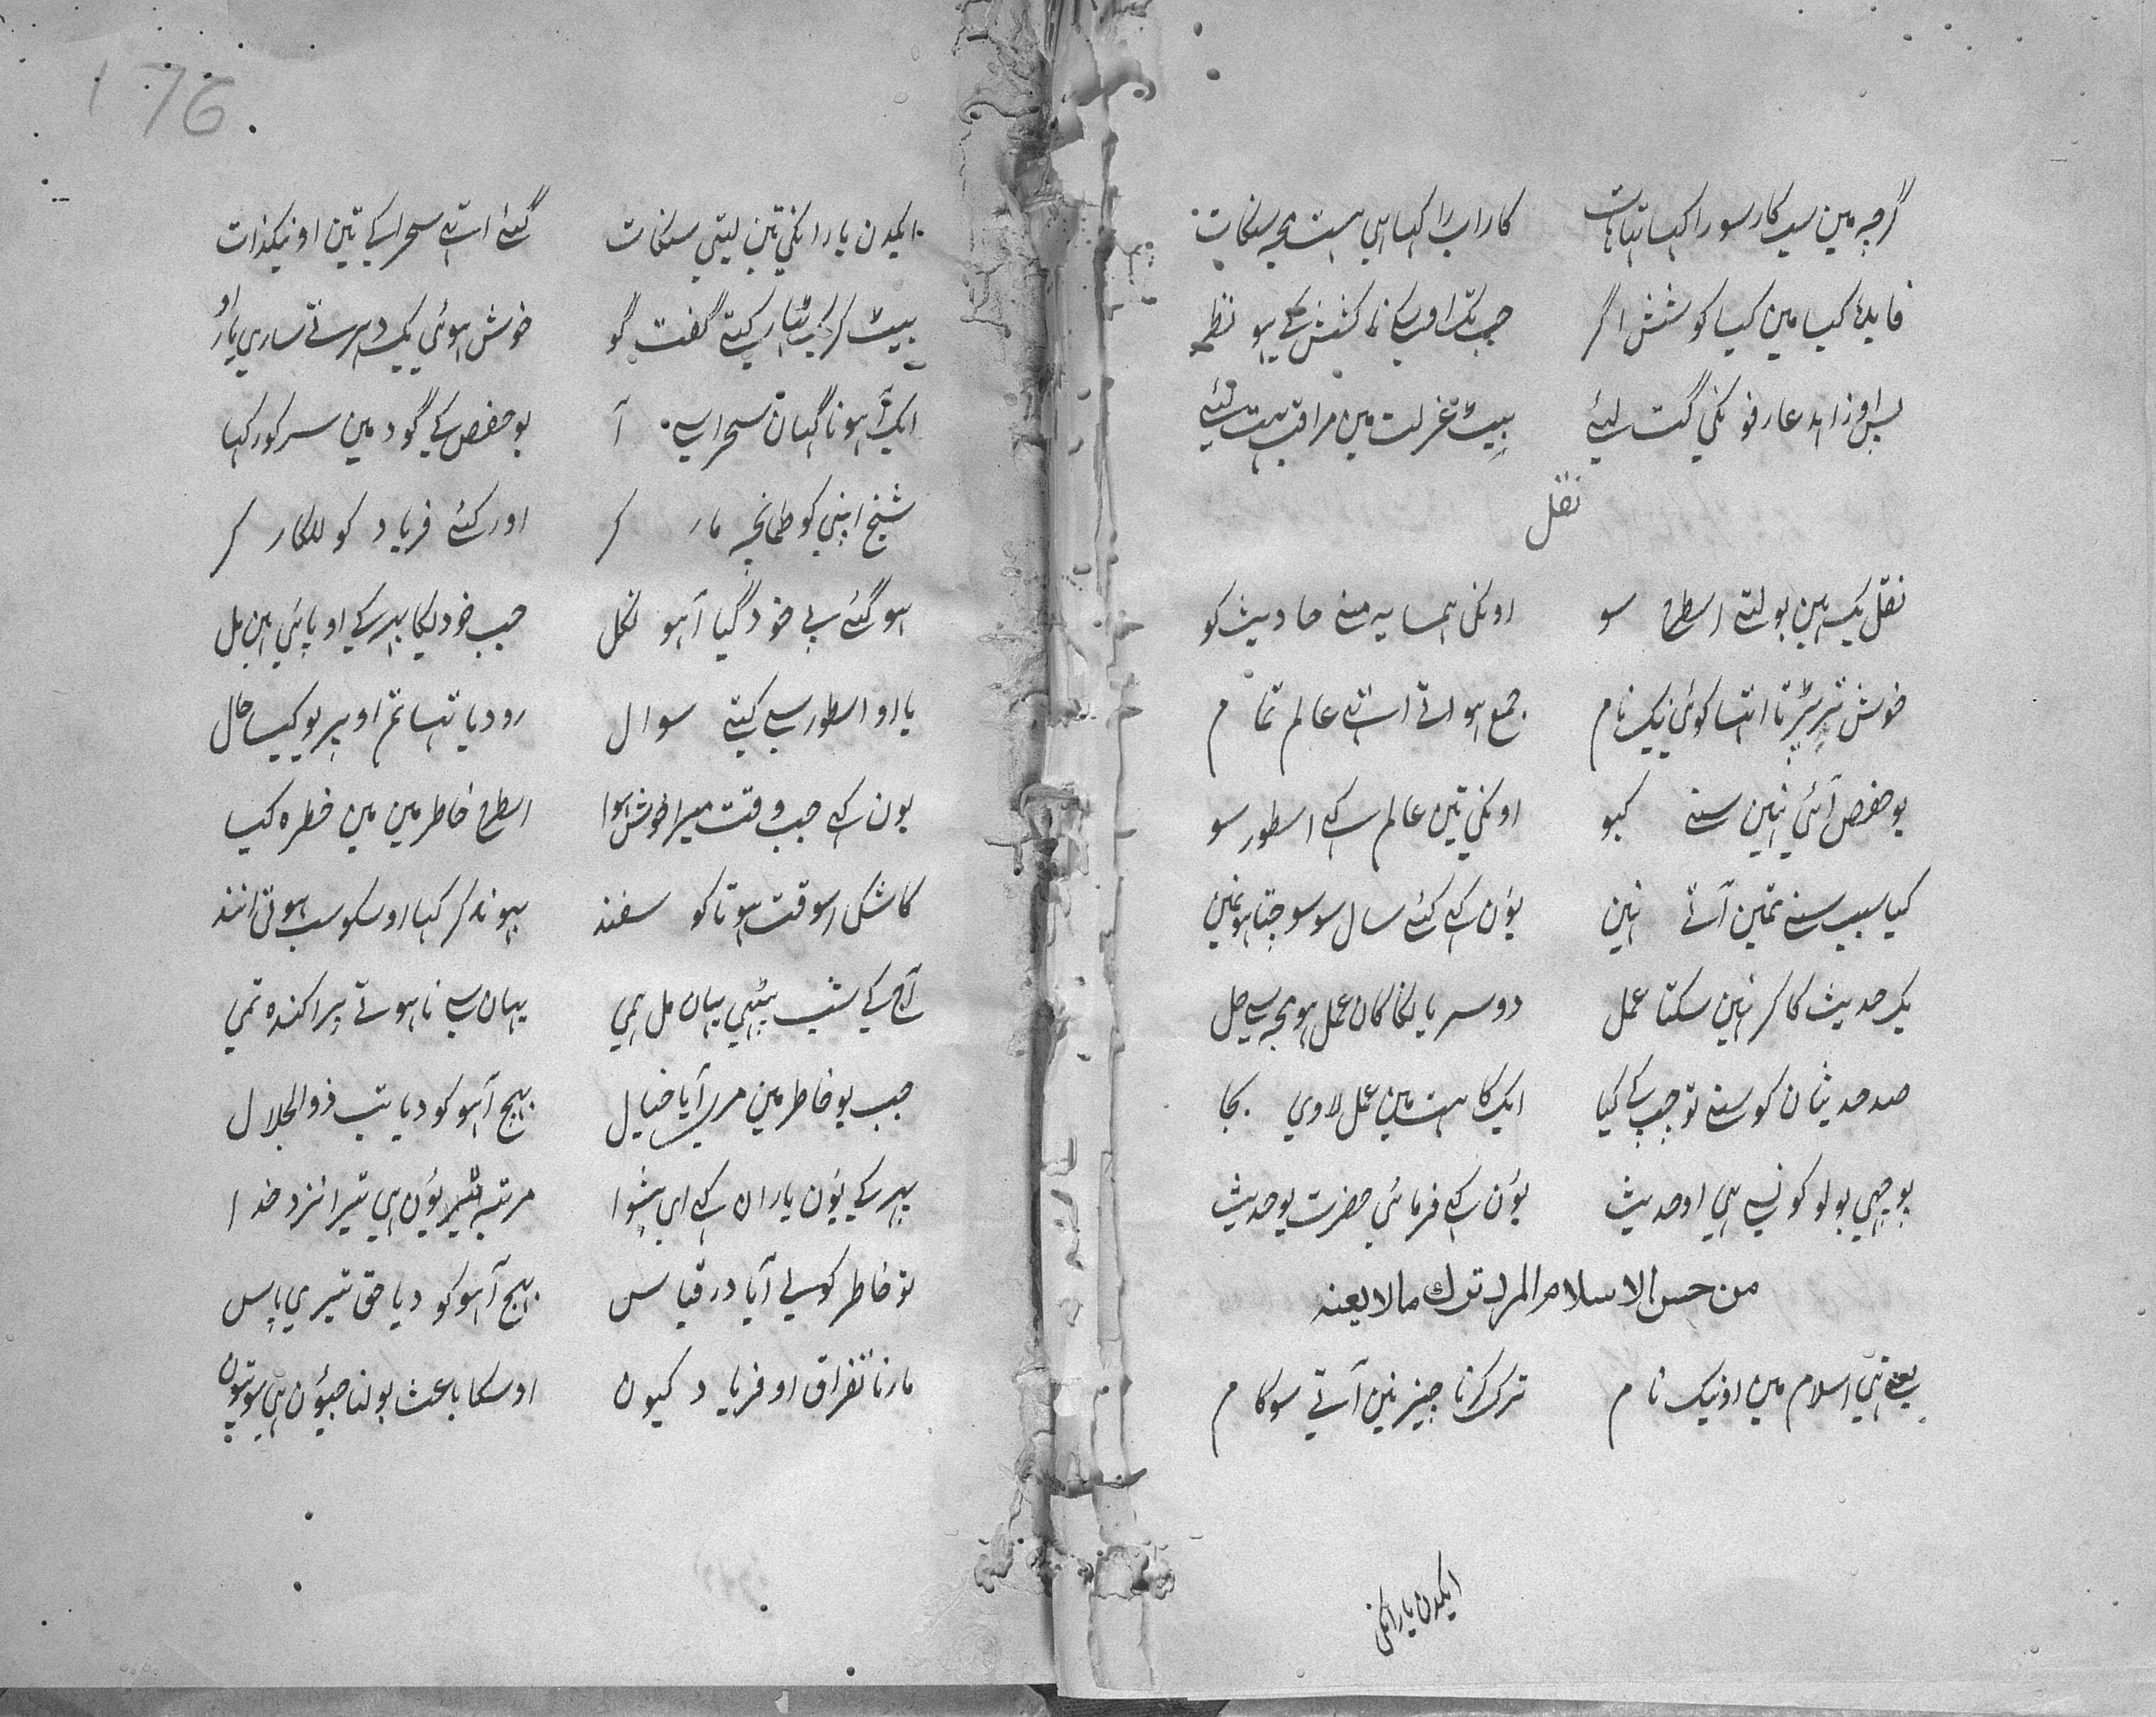 گرچہ مین سب کار سورا کیا تہات کاراب را کیا ہی ہست مجہ سنکات
فایدہ کیا مین کیا کوشش اگر جب تک اوسکا نا کشش کے ہو نظر
بس او زاہد عارفونکی گت لیئے بیٹ عزلت مین مراقب ہت لئے
نقل
نقل یک ہین بولتے اسطرح سو اونکی ہمسایہ منے حادیث کو
خوش تر پڑتا اتہا کوئی نیک نام جمع ہو اتے اتہے عالم تمام
بوحفص آئی نہین سنے کبو اونکی تین عالم کہے اسطور سو
کیا سبب سنے تمین آتے نہین یؤن کہے کئے سال سو سوچتا ہون مین
یک حدیث کا کر نہین سکتا عمل دوسریانکا کان عمل ہو مجہ سے حل
صد حدیثان کو سنے تو جب کے کیا ایک کا ہت مین عمل لاوی بجا
پوچہی بولو کونسی ہی او حدیث یؤن کہے فرمائی حضرت یو حدیث
من حسن الاسلام المرء ترك مالا یعنه
یعنے ہی اسلام مین او نیک نام ترک کرنا چیز نین آتے سو کام
ایکدن یارانکی
176
ایکدن یارانکی تین لیتی سنکات گئے اتہے سحرا کے تین او نیکذات
بیٹ کر کیتے گفت گو خوش ہوئی یک دہرستے ساری یارو
ایک آہو ناگہان سحرا سے آ بوحفص کے گود مین سر کور کہا
شیخ اپنی کو طمانچہ مار کر اور کئے فریاد کو للکار کر
ہو گئے بے خود گیا آہو نکل جب خودیکا پہر کے او پائی ہین بل
یارو اسطور سے کیتے سوال رو دیا تہا تم اوپر یو کیسا حال
یون کہے جب وقت میرا خوش ہوا اسطرح خاطر مین مین خطرہ کیا
کاشکی اسوقت ہوتا کو سفند بہوندکر کہا اوسکو سب ہوتی انند
آج کے شب بیٹہی یہان مل ہمی یہان سے نا ہوتے پراکندہ تمی
جب یو خاطر مین مری آیا خیال بہیج آہو کو دیا تب ذوالجلال
پہر کے یؤن یاران کہے ای پیشوا مرتبہ تیرا یؤن ہی تیرا نزد خدا
تو خاطر کوسی آیا در قیاس بہیج آہو کو دیا حق تیری پاس
مارنا تفراق او فریاد کیون اوسکا باعث بولنا جیؤن ہی سو تیون